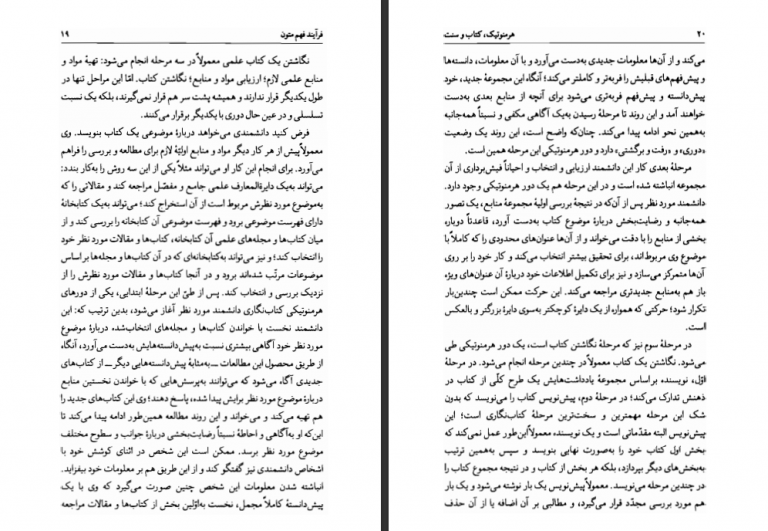 فرآیند فهم متون ۱۹
نگاشتن یک کتاب علمی معمولاً در سه مرحله انجام می‌شود: تهیهٔ مواد و
منابع علمی لازم؛ ارزیابی مواد و منابع؛ نگاشتن کتاب. امّا این مراحل تنها در
طول یکدیگر قرار ندارند و همیشه پشت سر هم قرار نمی‌گیرند، بلکه یک نسبت
تسلسلی و در عین حال دوری با یکدیگر برقرار می‌کنند.
فرض کنید دانشمندی می‌خواهد دربارهٔ موضوعی یک کتاب بنویسد. وی
معمولاً پیش از هر کار دیگر مواد و منابع اولیّهٔ لازم برای مطالعه و بررسی را فراهم
می‌آورد. برای انجام این کار او می‌تواند مثلاً یکی از این سه روش را به‌کار بندد:
می‌تواند به‌یک دایرةالمعارف علمی جامع و مفصّل مراجعه کند و مقالاتی را که
به‌موضوع مورد نظرش مربوط است از آن استخراج کند؛ می‌تواند به‌یک کتابخانهٔ
دارای فهرست موضوعی برود و فهرست موضوعی آن کتابخانه را بررسی کند و از
میان کتاب‌ها و مجله‌های علمی آن کتابخانه، کتاب‌ها و مقالات مورد نظر خود
را انتخاب کند؛ و نیز می‌تواند به‌کتابخانه‌ای که در آن کتاب‌ها و مجله‌ها بر اساس
موضوعات مرتّب شده‌اند برود و در آنجا کتاب‌ها و مقالات مورد نظرش را از
نزدیک بررسی و انتخاب کند. پس از طیّ این مرحلهٔ ابتدایی، یکی از دورهای
هرمنوتیکی کتاب‌نگاری دانشمند مورد نظر آغاز می‌شود، بدین ترتیب که: این
دانشمند نخست با خواندن کتاب‌ها و مجله‌های انتخاب‌شده دربارهٔ موضوع
مورد نظر خود آگاهی بیشتری نسبت به‌پیش‌دانسته‌هایش به‌دست می‌آورد، آنگاه
از طریق محصول این مطالعات ــ به‌مثابهٔ پیش‌دانسته‌هایی دیگر ــ از کتاب‌های
جدیدی آگاه می‌شود که می‌توانند به‌پرسش‌هایی که با خواندن نخستین منابع
دربارهٔ موضوع مورد نظر برایش پیدا شده، پاسخ دهند؛ وی این کتاب‌های جدید را
هم تهیه می‌کند و می‌خواند و این روند مطالعه همین‌طور ادامه پیدا می‌کند تا
این‌که او به‌آگاهی و احاطهٔ نسبتاً رضایت‌بخشی دربارهٔ جوانب و سطوح مختلف
موضوع مورد نظر برسد. ممکن است این شخص در اثنای کوشش خود با
اشخاص دانشمندی نیز گفتگو کند و از این طریق هم بر معلومات خود بیفزاید.
انباشته شدن معلومات این شخص چنین صورت می‌گیرد که وی با یک
پیش‌دانستهٔ کاملاً مجمل، نخست به‌اوّلین بخش از کتاب‌ها و مقالات مراجعه
۲۰ هرمنوتیک، کتاب و سنت
می‌کند و از آن‌ها معلومات جدیدی به‌دست می‌آورد و با آن معلومات، دانسته‌ها
و پیش‌فهم‌های قبلیش را فربه‌تر و کاملتر می‌کند؛ آنگاه این مجموعهٔ جدید، خود
پیش‌دانسته و پیش‌فهم فربه‌تری می‌شود برای آنچه از منابع بعدی به‌دست
خواهند آمد و این روند تا مرحلهٔ رسیدن به‌یک آگاهی مکفی و نسبتاً همه‌جانبه
به‌همین نحو ادامه پیدا می‌کند. چنان‌که واضح است، این روند یک وضعیت
«دوری» و «رفت و برگشتی» دارد و دور هرمنوتیکی این مرحله همین است.
مرحلهٔ بعدی کار این دانشمند ارزیابی و انتخاب و احیاناً فیش‌برداری از آن
مجموعه انباشته شده است و در این مرحله هم یک دور هرمنوتیکی وجود دارد.
دانشمند مورد نظر پس از آن‌که در نتیجهٔ بررسی اولیهٔ مجموعهٔ منابع، یک تصور
همه‌جانبه و رضایت‌بخش دربارهٔ موضوع کتاب به‌دست آورد، قاعدتاً دوباره
بخشی از منابع را با دقت می‌خواند و از آن‌ها عنوان‌های محدودی را که کاملاً با
موضوع وی مربوط‌اند، برای تحقیق بیشتر انتخاب می‌کند و کار خود را بر روی
آن‌ها متمرکز می‌سازد و نیز برای تکمیل اطلاعات خود دربارهٔ آن عنوان‌های ویژه
باز هم به‌منابع جدیدتری مراجعه می‌کند. این حرکت ممکن است چندین‌بار
تکرار شود؛ حرکتی که همواره از یک دایرهٔ کوچکتر به‌سوی دایرهٔ بزرگتر و بالعکس
است.
در مرحلهٔ سوم نیز که مرحلهٔ نگاشتن کتاب است، یک دور هرمنوتیکی طی
می‌شود. نگاشتن یک کتاب معمولاً در چندین مرحله انجام می‌شود. در مرحلهٔ
اوّل، نویسنده، بر اساس مجموعهٔ یادداشت‌هایش یک طرح کلّی از کتاب در
ذهنش تدارک می‌کند؛ در مرحلهٔ دوم، پیش‌نویس کتاب را می‌نویسد که بدون
شک این مرحله مهمترین و سخت‌ترین مرحلهٔ کتاب‌نگاری است؛ این
پیش‌نویس البته مقدّماتی است و یک نویسنده، معمولاً این‌طور عمل نمی‌کند که
بخش اول کتاب خود را به‌صورت نهایی بنویسد و سپس به‌همین ترتیب
به‌بخش‌های دیگر بپردازد، بلکه هر بخش از کتاب و در نتیجه مجموع کتاب را
در چندین مرحله می‌نویسد. معمولاً پیش‌نویس یک بار نوشته می‌شود و یک بار
هم مورد بررسی مجدّد قرار می‌گیرد، و مطالبی بر آن اضافه یا از آن حذف